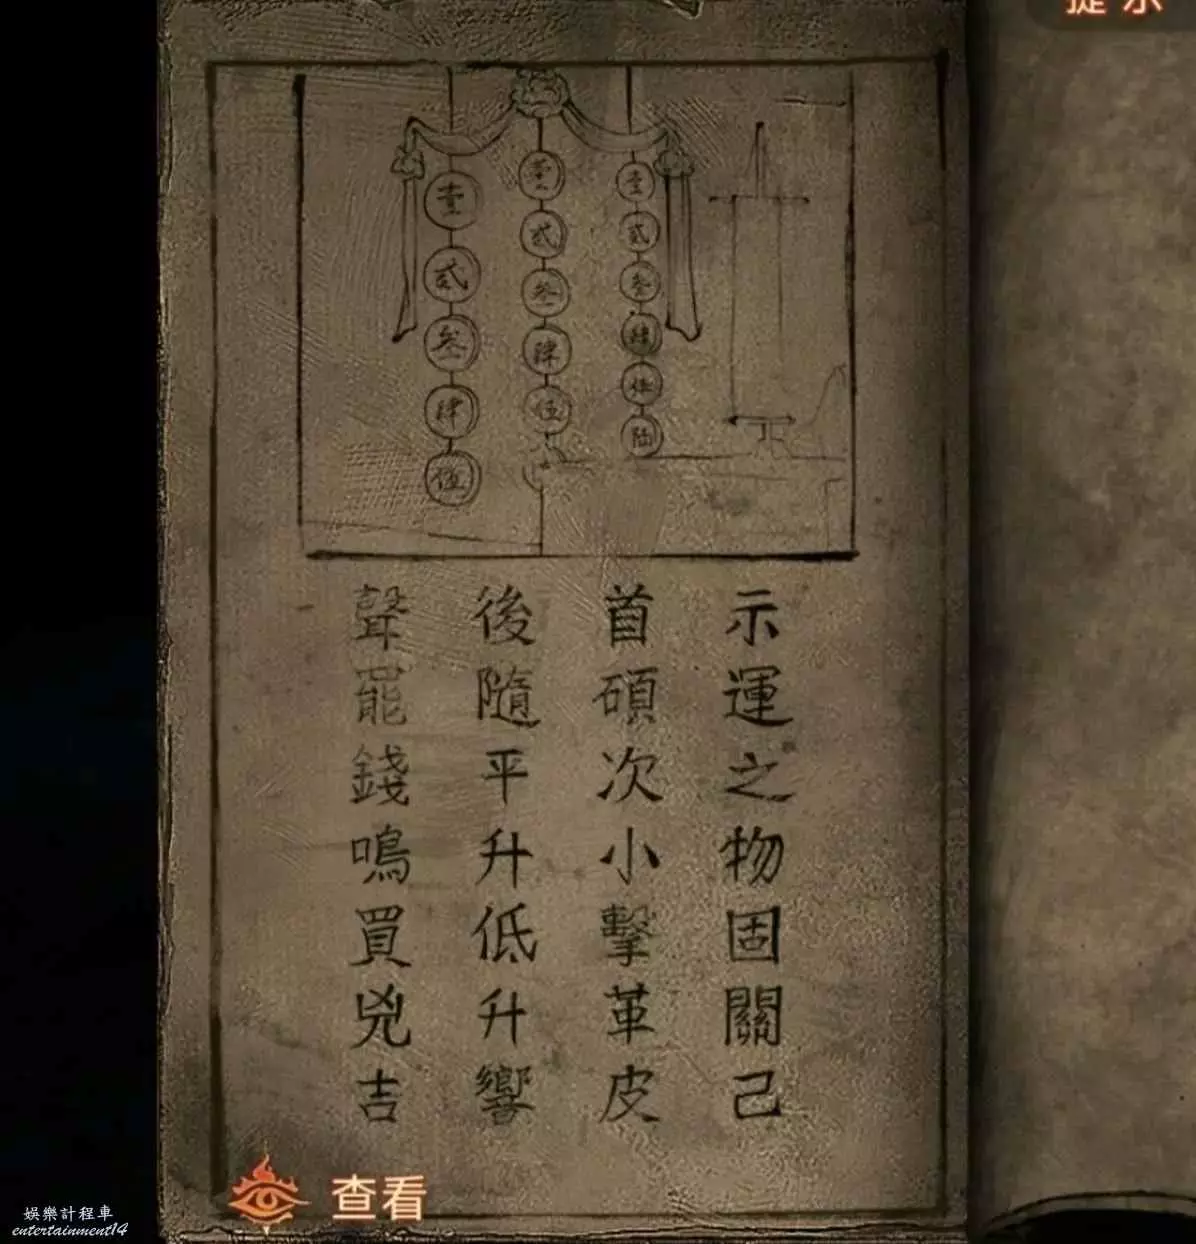 提示
壹 壹 壹
貳 貳 貳
叁 叁 叁
肆 肆 肆
伍 伍 伍
陸
示運之物固關己
首碩次小擊革皮
後隨平升低升響
聲罷錢鳴買兇吉
查看
娛樂計程車
entertainment14